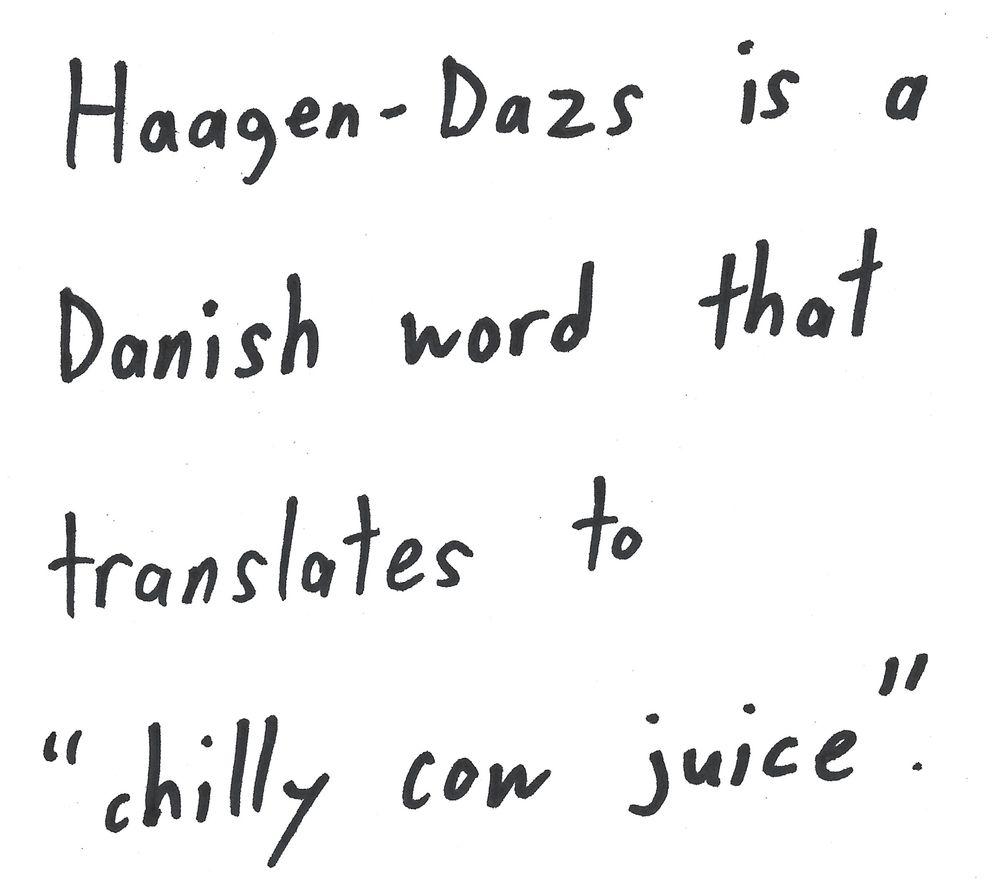 Haagen-Dazs is a
Danish word that
translates to
"chilly cow juice".